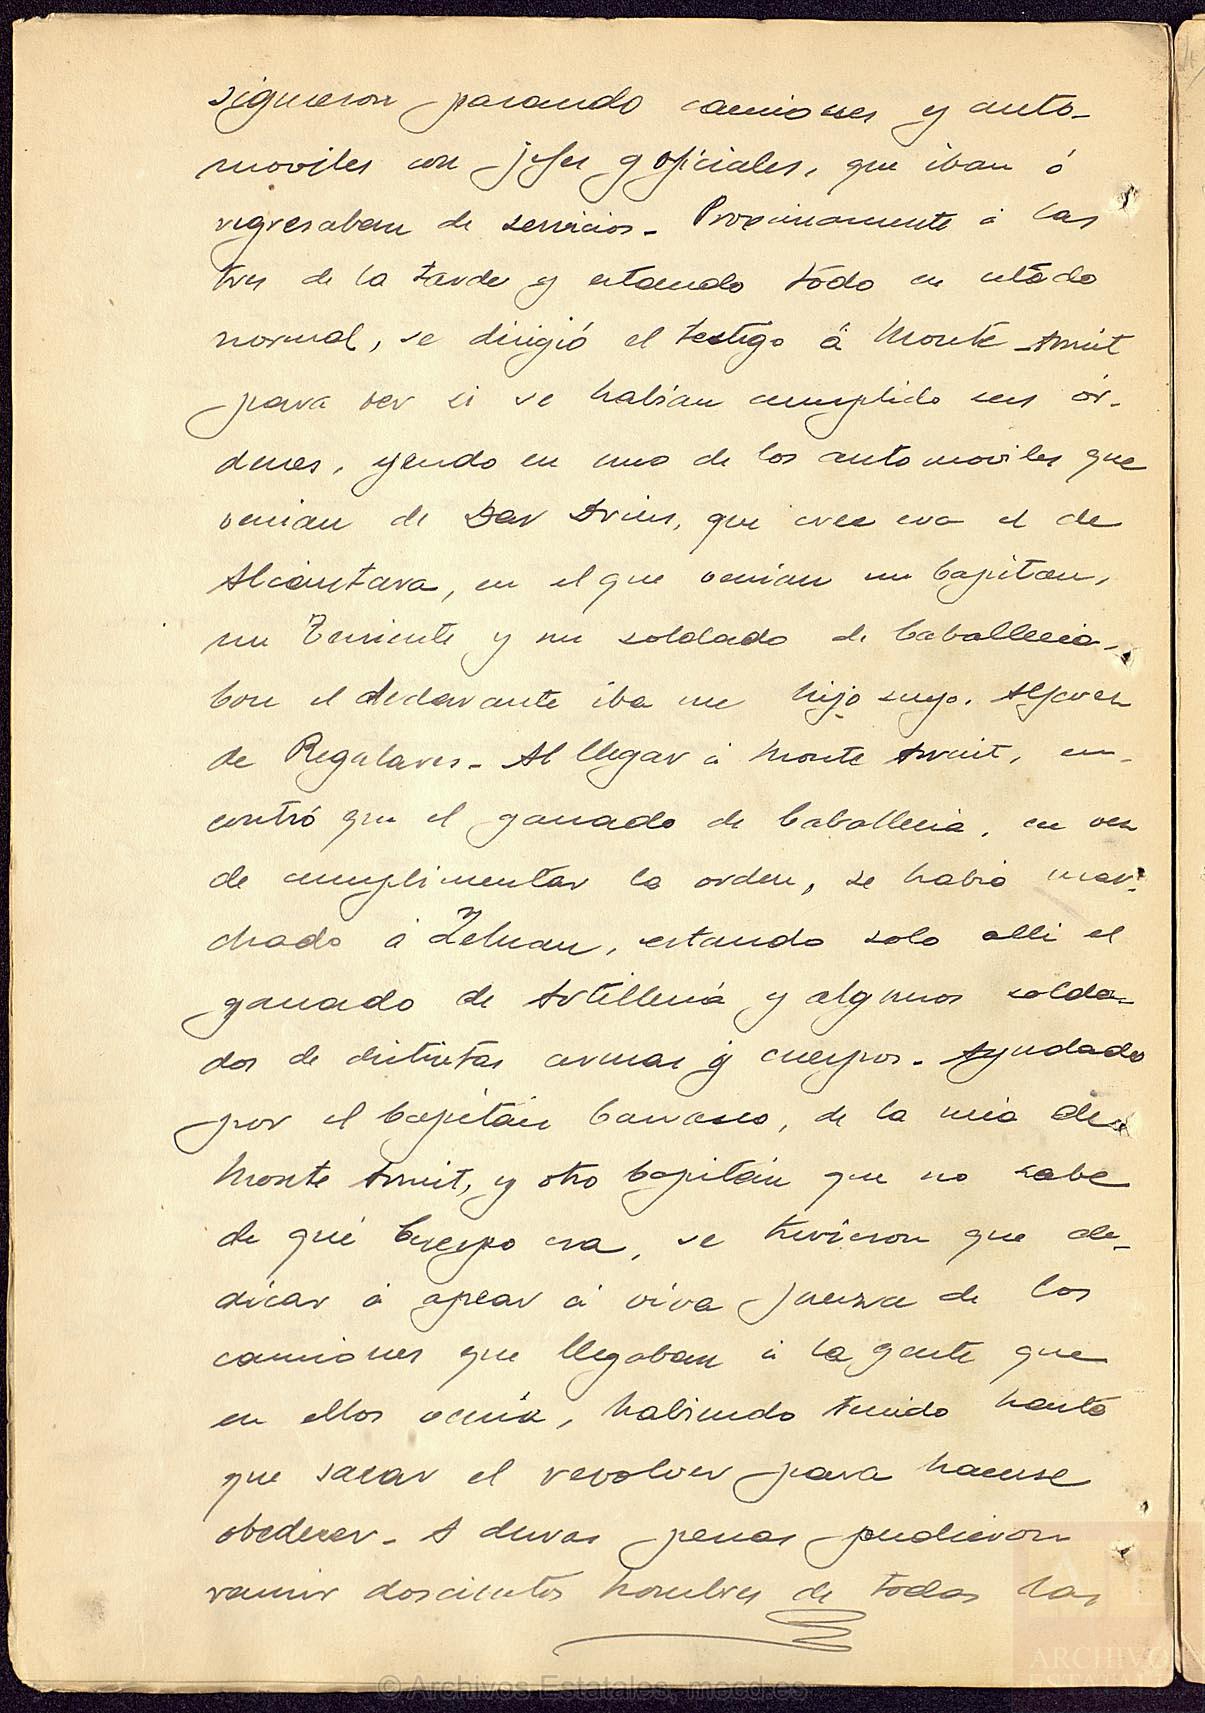 siguieron pasando camiones y auto-
moviles con jefes y oficiales, que iban ó
regresaban de servicios. Proximamente á las
tres de la tarde y estando todo en estado
normal, se dirigió el testigo á Monte-Arruit
para ver si se habian cumplido sus ór-
denes, yendo en uno de los automoviles que
venian de Dar Drius, que cree era el de
Alcántara, en el que venian un Capitan,
un Teniente y un soldado de Caballeria.
Con el declarante iba un hijo suyo. Alferez
de Regulares. Al llegar á Monte Arruit, en-
contró que el ganado de Caballeria, en vez
de cumplimentar la orden, se habia mar-
chado á Zeluan, estando solo alli el
ganado de Artilleria y algunos solda-
dos de distintas armas y cuerpos. Ayudado
por el Capitán Carrasco, de la mia de
Monte Arruit, y otro Capitán que no sabe
de qué Cuerpo era, se tuvieron que de-
dicar á apear á viva fuerza de los
camiones que llegaban á la gente que
en ellos venia, habiendo tenido hasta
que sacar el revolver para hacerse
obedecer. A duras penas pudieron
reunir doscientos hombres de todas las
© Archivos Estatales, mecd.es
ARCHIVOS
ESTATALES